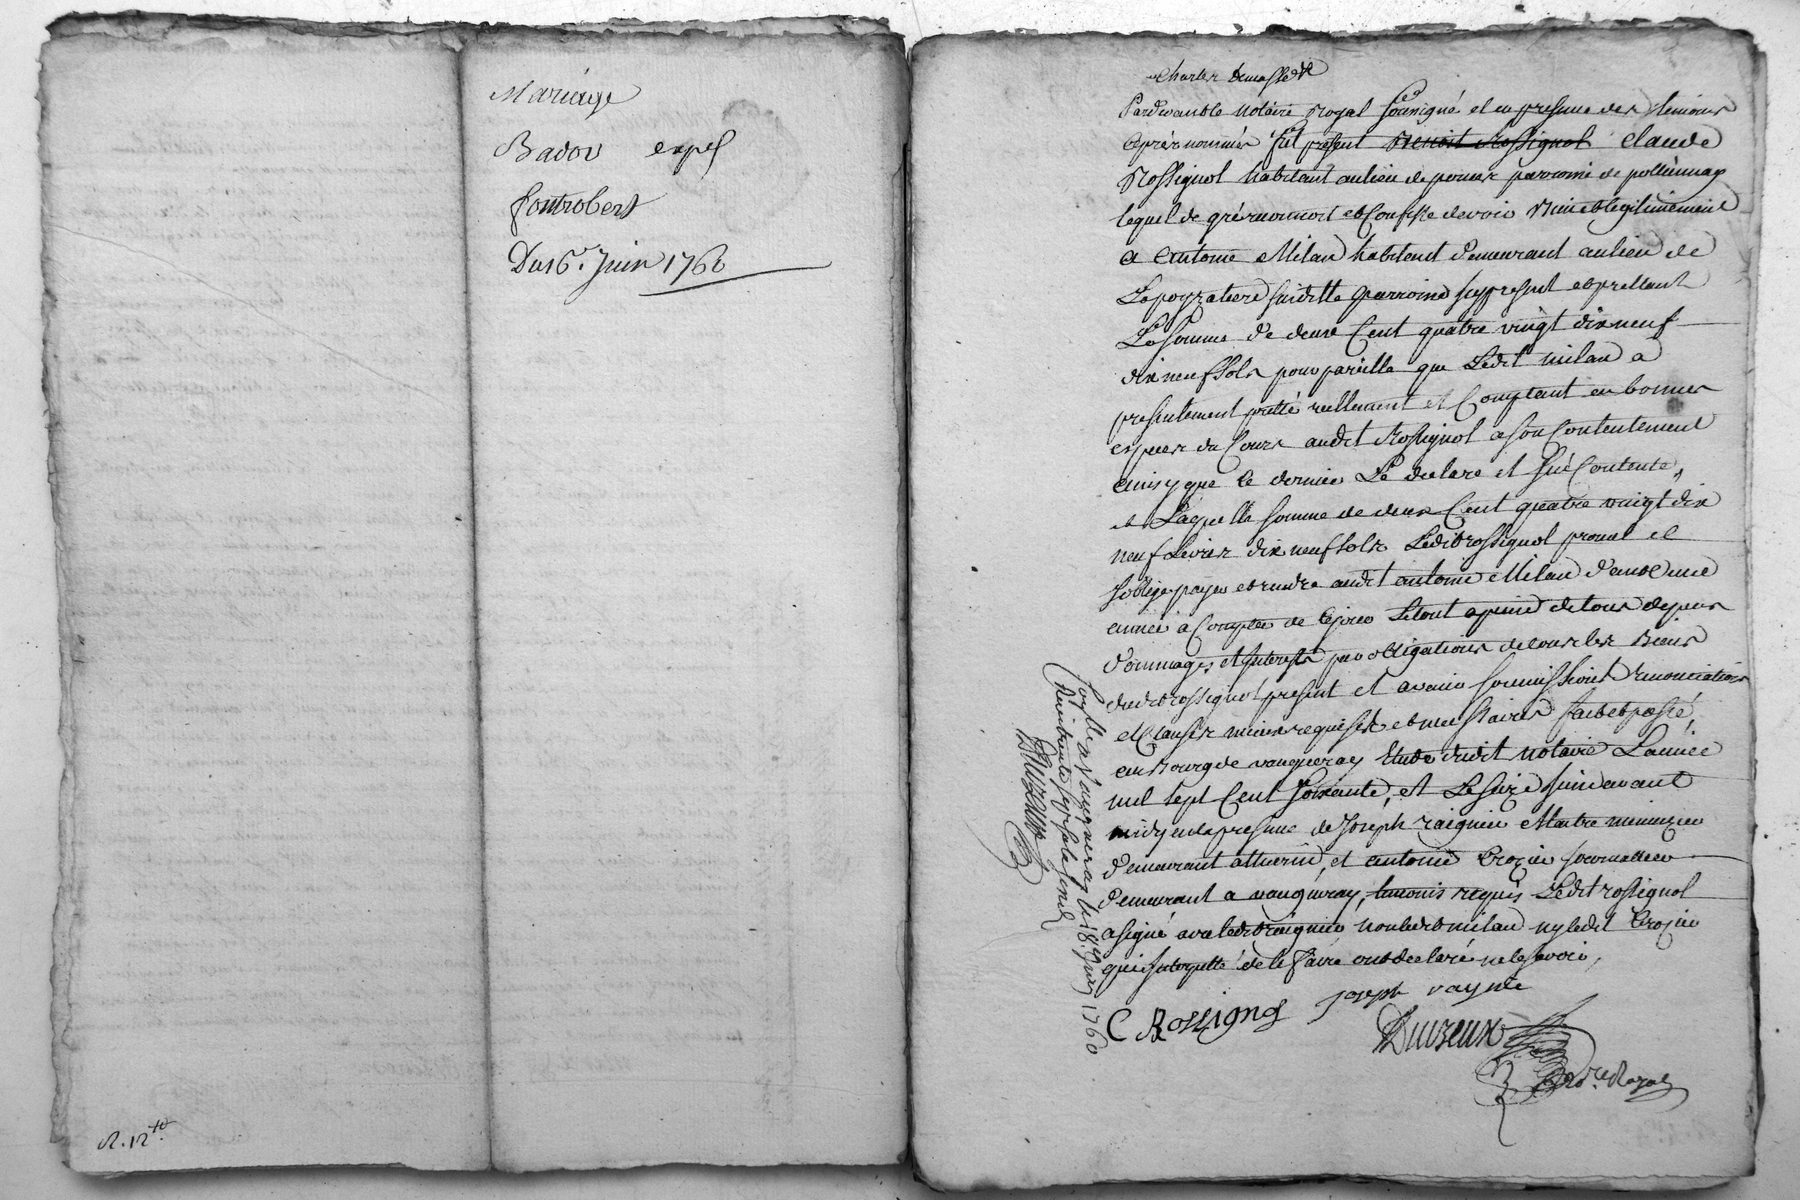 Mariage
Badou exp
fontrobert
Du 16. Juin 1760
R. 12
Charles
Pardevant le notaire Royal soussigné et en presence des temoins
après nommés fut present Benoit Rossignol claude
Rossignol habitant au lieu de parroisse de pollionnay
lequel de gré reconnoit et confesse devoir bien et legitimement
a antoine Milan habitant demeurant au lieu de
susditte parroisse icy present et prettant
La somme de deux Cent quatre vingt dix neuf
dix neuf sols pour pareille que Ledit milan a
presentement pretté reellement et Comptant en bonnes
especes du Cours audit Rossignol a son Contentement
ainsy que ce dernier Le declare et s'en Contente,
et Laquelle somme de deux Cent quatre vingt dix
neuf Livres dix neuf sols Ledit rossignol promet et
s'oblige payer et rendre audit antoine Milan dans une
année a Compter de ce jour Le tout a peine de tous depens
dommages et interests par obligations de tous les Biens
dudit rossignol present et avenir soumissions renonciations
et Clauses requises et necessaires fait et passé,
au Bourg de vaugneray Etude dudit notaire L'année
mil sept Cent soixante, et Le seize juin avant
midy en la presence de Joseph raignier Maitre menuizier
demeurant a thurin, et antoine Crozier journallier
demeurant a vaugneray, temoins requis Ledit rossignol
a signé avec ledit raignier non ledit milan ny ledit Crozier
qui interpellé de le faire ont declaré ne le savoir,
C Rossignol Joseph raynie
Duizeux
no.re Royal
Conllé a Vaugneray le 18e Juin 1760
Duizeux